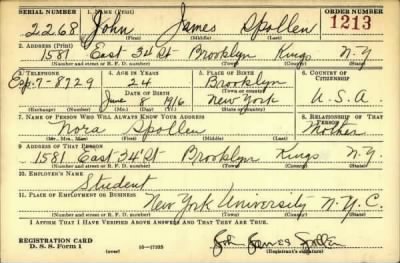 SERIAL NUMBER 1. NAME (Print) ORDER NUMBER
2268 John James Spollen 1213
(First) (Middle) (Last)
2. ADDRESS (Print)
1581 East 34 St Brooklyn Kings N.Y
(Number and street or R. F. D. number) (Town) (County) (State)
3. TELEPHONE 4. AGE IN YEARS 5. PLACE OF BIRTH 6. COUNTRY OF CITIZENSHIP
Esp. 7-8729 24 Brooklyn
DATE OF BIRTH (Town or county)
June 8 1916 New York U.S.A
(Exchange) (Number) (Mo.) (Day) (Yr.) (State or country)
7. NAME OF PERSON WHO WILL ALWAYS KNOW YOUR ADDRESS 8. RELATIONSHIP OF THAT PERSON
Nora Spollen Mother
(Mr., Mrs., Miss) (First) (Middle) (Last)
9. ADDRESS OF THAT PERSON
1581 East 34 St Brooklyn Kings N.Y
(Number and street or R. F. D. number) (Town) (County) (State)
10. EMPLOYER'S NAME
Student
11. PLACE OF EMPLOYMENT OR BUSINESS
New York University N.Y.C.
(Number and street or R. F. D. number) (Town) (County) (State)
I AFFIRM THAT I HAVE VERIFIED ABOVE ANSWERS AND THAT THEY ARE TRUE.
REGISTRATION CARD
D. S. S. Form 1 (over) 16—17105 John James Spollen
(Registrant's signature)